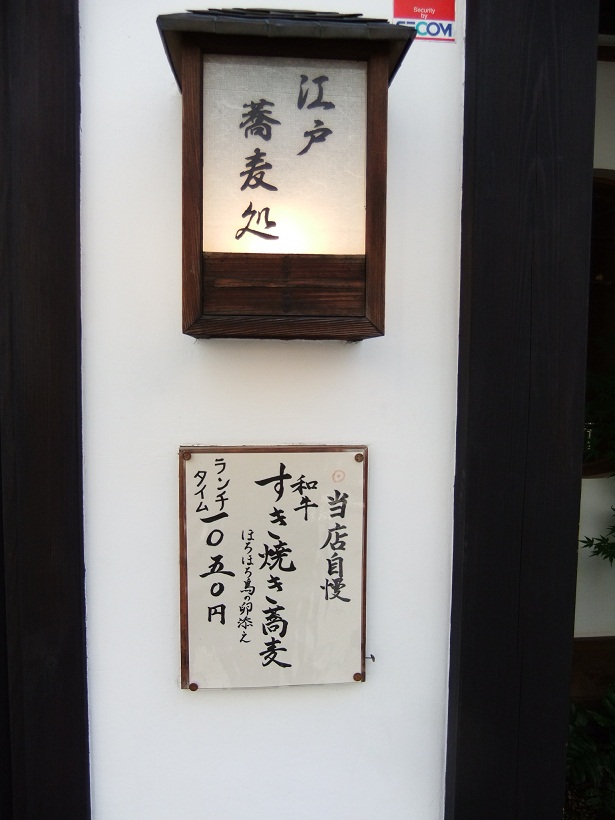 Security
by
SECOM
江戸
蕎麦処
当店自慢
和牛
すき焼き蕎麦
ほろほろ鳥の卵添え
ランチ
タイム
一〇五〇円